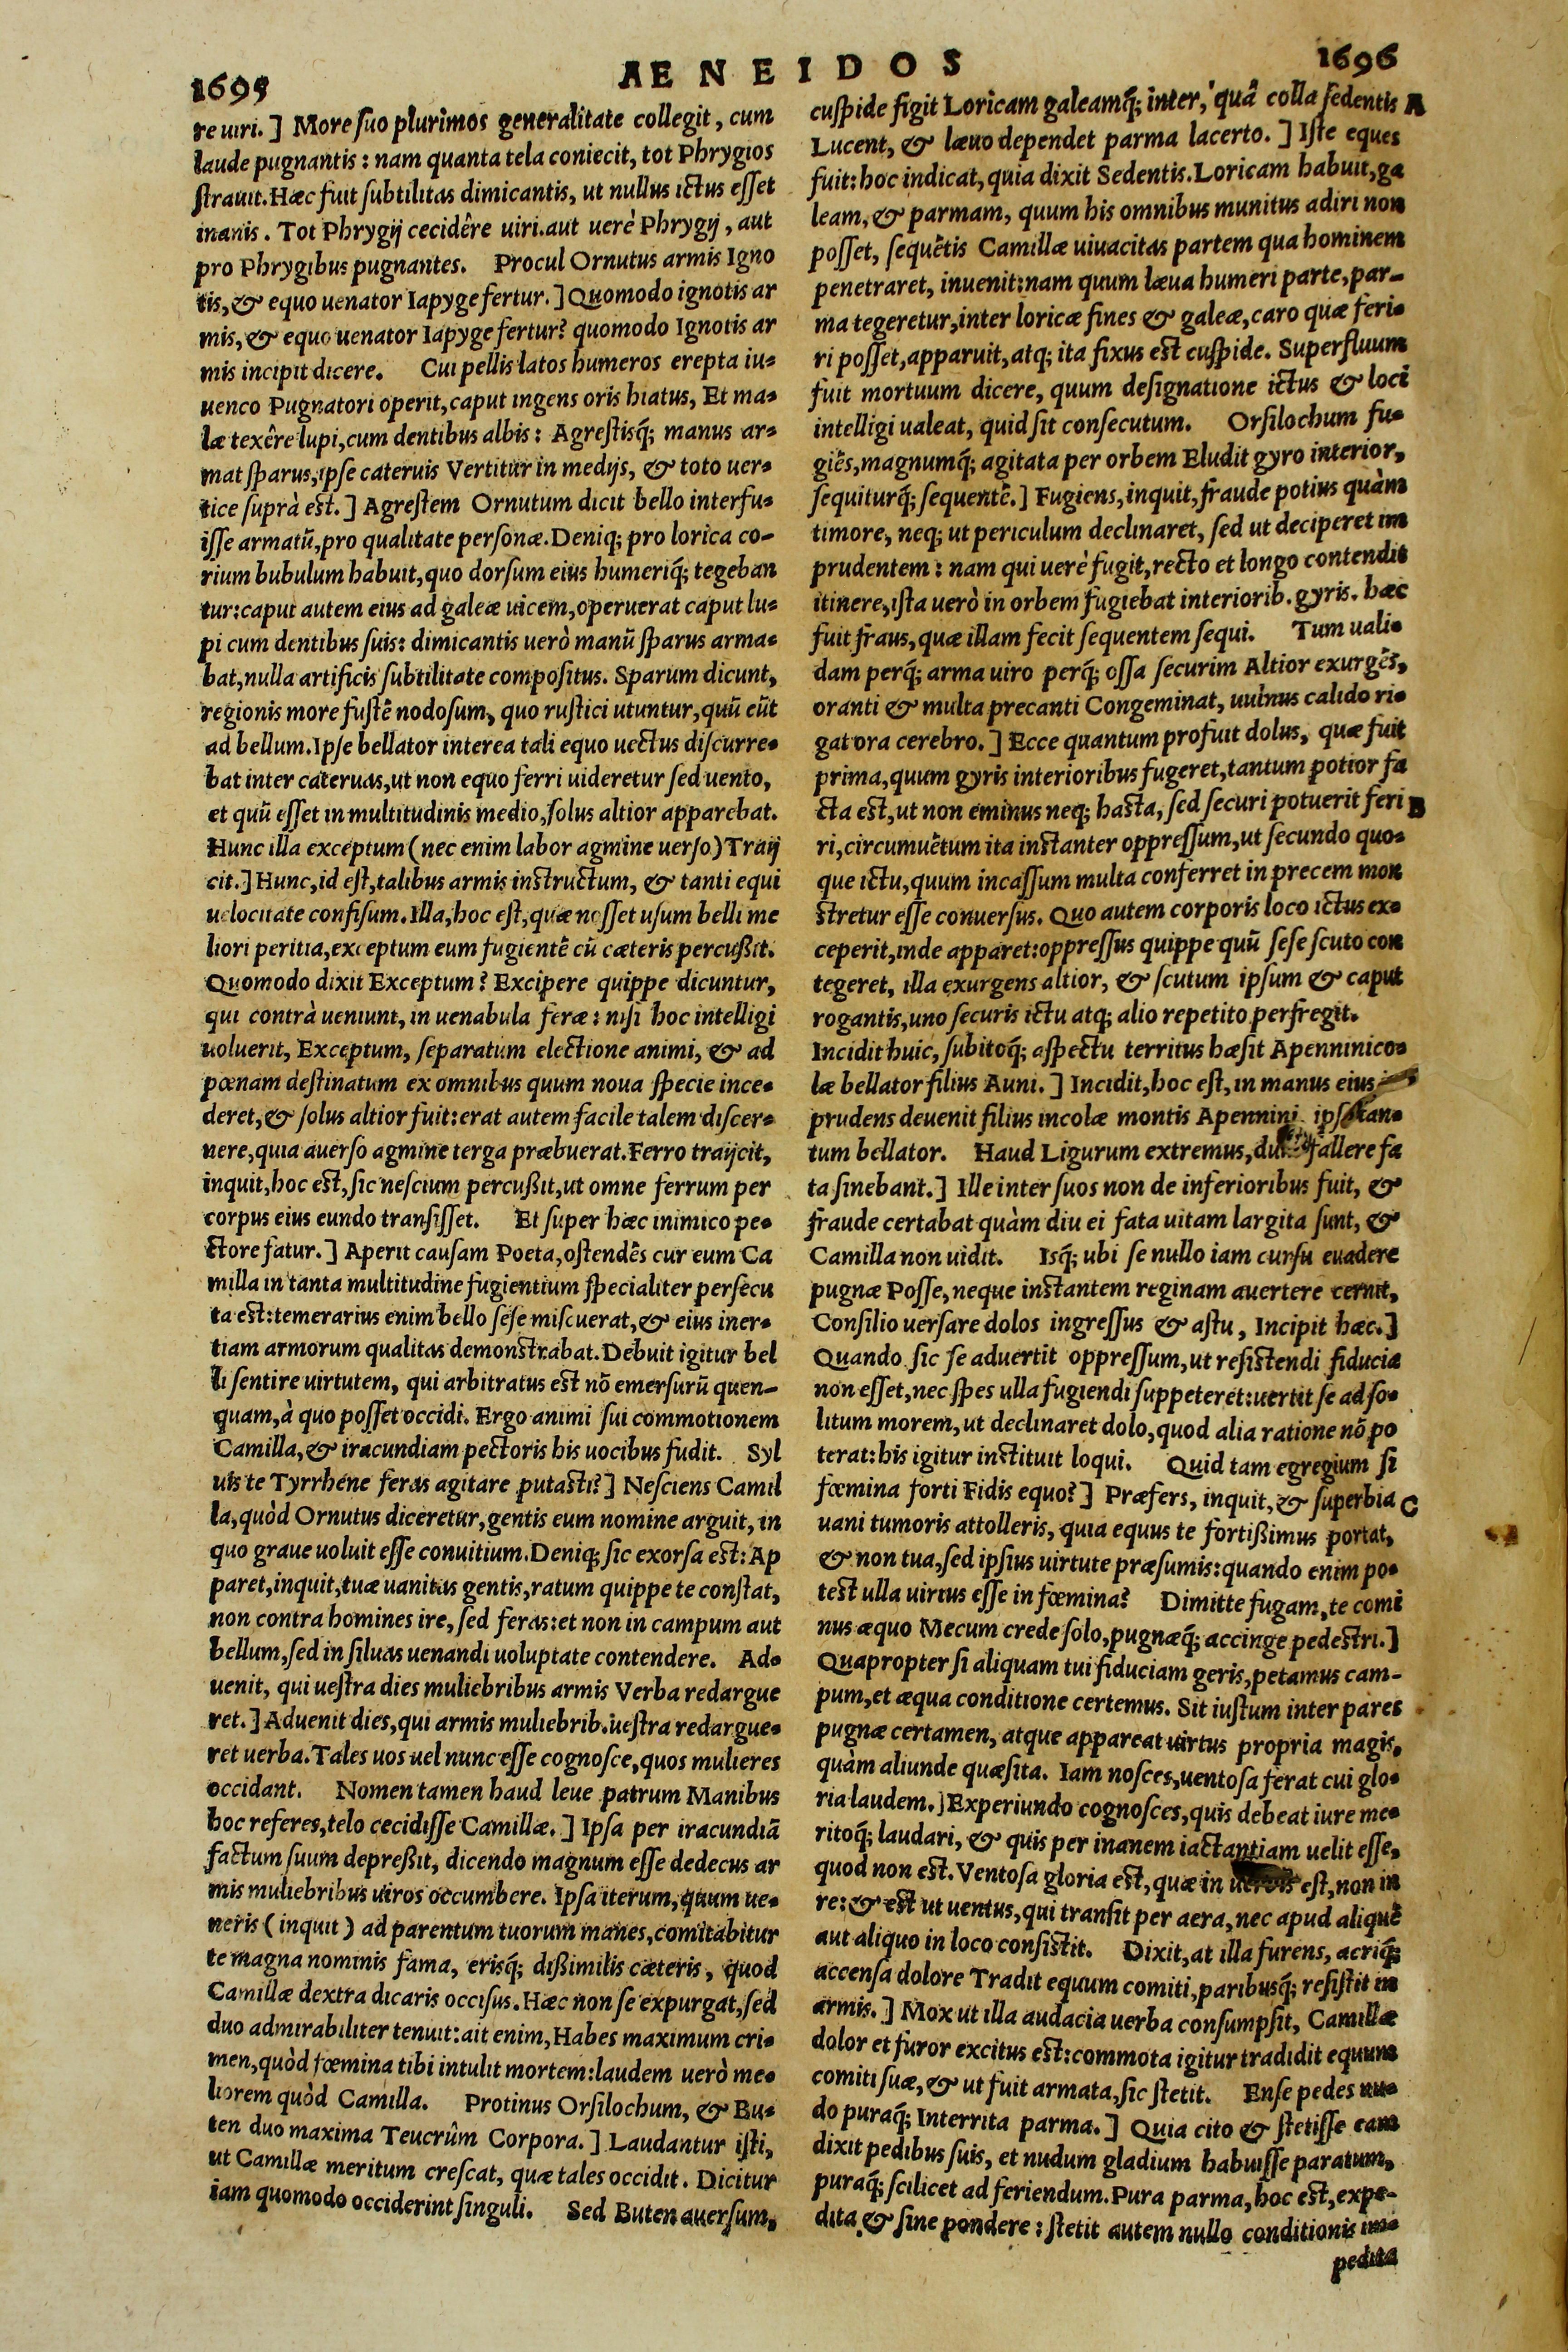 1695
AENEIDOS
1696
re uiri.] More suo plurimos generalitate collegit, cum
laude pugnantis: nam quanta tela coniecit, tot Phrygios
strauit. Hæc fuit subtilitas dimicantis, ut nullus ictus esset
inanis. Tot Phrygij cecidêre uiri. aut uerè Phrygij, aut
pro Phrygibus pugnantes. Procul Ornutus armis Igno
tis, & equo uenator Iapyge fertur.] Quomodo ignotis ar
mis, & equo uenator Iapyge fertur? quomodo Ignotis ar
mis incipit dicere. Cui pellis latos humeros erepta iu-
uenco Pugnatori operit, caput ingens oris hiatus, Et ma-
læ texêre lupi, cum dentibus albis: Agrestisq́; manus ar-
mat sparus, ipse cateruis Vertitur in medijs, & toto uer-
tice suprà est.] Agrestem Ornutum dicit bello interfu-
isse armatū, pro qualitate personæ. Deniq; pro lorica co-
rium bubulum habuit, quo dorsum eius humeriq́; tegeban
tur: caput autem eius ad galeæ uicem, operuerat caput lu-
pi cum dentibus suis: dimicantis uerò manū sparus arma-
bat, nulla artificis subtilitate compositus. Sparum dicunt,
regionis more fustē nodosum, quo rustici utuntur, quū eūt
ad bellum. Ipse bellator interea tali equo uectus discurre-
bat inter cateruas, ut non equo ferri uideretur sed uento,
et quū esset in multitudinis medio, solus altior apparebat.
Hunc illa exceptum (nec enim labor agmine uerso) Traij
cit.] Hunc, id est, talibus armis instructum, & tanti equi
uelocitate confisum. Illa, hoc est, quæ nosset usum belli me
liori peritia, exceptum eum fugientē cū cæteris percußit.
Quomodo dixit Exceptum? Excipere quippe dicuntur,
qui contrà ueniunt, in uenabula feræ: nisi hoc intelligi
uoluerit, Exceptum, separatum electione animi, & ad
pœnam destinatum ex omnibus quum noua specie ince-
deret, & solus altior fuit: erat autem facile talem discer-
nere, quia auerso agmine terga præbuerat. Ferro traijcit,
inquit, hoc est, sic nescium percußit, ut omne ferrum per
corpus eius eundo transisset. Et super hæc inimico pe-
ctore fatur.] Aperit causam Poeta, ostendēs cur eum Ca
milla in tanta multitudine fugientium specialiter persecu
ta est: temerarius enim bello sese miscuerat, & eius iner-
tiam armorum qualitas demonstrabat. Debuit igitur bel
li sentire uirtutem, qui arbitratus est nō emersurū quen-
quam, à quo posset occidi. Ergo animi sui commotionem
Camilla, & iracundiam pectoris his uocibus fudit. Syl
uis te Tyrrhene feras agitare putasti?] Nesciens Camil
la, quòd Ornutus diceretur, gentis eum nomine arguit, in
quo graue uoluit esse conuitium. Deniq; sic exorsa est: Ap
paret, inquit, tuæ uanitas gentis, ratum quippe te constat,
non contra homines ire, sed feras: et non in campum aut
bellum, sed in siluas uenandi uoluptate contendere. Ad-
uenit, qui uestra dies muliebribus armis Verba redargue
ret.] Aduenit dies, qui armis muliebrib. uestra redargue-
ret uerba. Tales uos uel nunc esse cognosce, quos mulieres
occidant. Nomen tamen haud leue patrum Manibus
hoc referes, telo cecidisse Camillæ.] Ipsa per iracundiā
factum suum depreßit, dicendo magnum esse dedecus ar
mis muliebribus uiros occumbere. Ipsa iterum, quum ue-
neris (inquit) ad parentum tuorum manes, comitabitur
te magna nominis fama, erisq́; dißimilis cæteris, quod
Camillæ dextra dicaris occisus. Hæc non se expurgat, sed
duo admirabiliter tenuit: ait enim, Habes maximum cri-
men, quòd fœmina tibi intulit mortem: laudem uerò me-
liorem quòd Camilla. Protinus Orsilochum, & Bu-
ten duo maxima Teucrûm Corpora.] Laudantur isti,
ut Camillæ meritum crescat, quæ tales occidit. Dicitur
iam quomodo occiderint singuli. Sed Buten auersum,
cuspide figit Loricam galeamq́; inter, quâ colla sedentis A
Lucent, & læuo dependet parma lacerto.] Iste eques
fuit: hoc indicat, quia dixit Sedentis. Loricam habuit, ga
leam, & parmam, quum his omnibus munitus adiri non
posset, sequētis Camillæ uiuacitas partem qua hominem
penetraret, inuenit: nam quum læua humeri parte, par-
ma tegeretur, inter loricæ fines & galeæ, caro quæ feri-
ri posset, apparuit, atq; ita fixus est cuspide. Superfluum
fuit mortuum dicere, quum designatione ictus & loci
intelligi ualeat, quid sit consecutum. Orsilochum fu-
giēs, magnumq́; agitata per orbem Eludit gyro interior,
sequiturq́; sequentē.] Fugiens, inquit, fraude potius quàm
timore, neq; ut periculum declinaret, sed ut deciperet im
prudentem: nam qui uerè fugit, recto et longo contendit
itinere, ista uerò in orbem fugiebat interiorib. gyris. hæc
fuit fraus, quæ illam fecit sequentem sequi. Tum uali-
dam perq́; arma uiro perq́; ossa securim Altior exurgēs,
oranti & multa precanti Congeminat, uulnus calido ri-
gat ora cerebro.] Ecce quantum profuit dolus, quæ fuit
prima, quum gyris interioribus fugeret, tantum potior fa
cta est, ut non eminus neq; hasta, sed securi potuerit feri B
ri, circumuētum ita instanter oppressum, ut secundo quo-
que ictu, quum incassum multa conferret in precem mon
stretur esse conuersus. Quo autem corporis loco ictus ex-
ceperit, inde apparet: oppressus quippe quū sese scuto con
tegeret, illa exurgens altior, & scutum ipsum & caput
rogantis, uno securis ictu atq; alio repetito perfregit.
Incidit huic, subitoq́; aspectu territus hæsit Apenninico-
læ bellator filius Auni.] Incidit, hoc est, in manus eius
prudens deuenit filius incolæ montis Apennini tan-
tum bellator. Haud Ligurum extremus, fallere fa
ta sinebant.] Ille inter suos non de inferioribus fuit, &
fraude certabat quàm diu ei fata uitam largita sunt, &
Camilla non uidit. Isq́; ubi se nullo iam cursu euadere
pugnæ Posse, neque instantem reginam auertere cernit,
Consilio uersare dolos ingressus & astu, Incipit hæc.]
Quando sic se aduertit oppressum, ut resistendi fiducia
non esset, nec spes ulla fugiendi suppeteret: uertit se ad so-
litum morem, ut declinaret dolo, quod alia ratione nō po
terat: his igitur instituit loqui. Quid tam egregium si
fœmina forti Fidis equo?] Præfers, inquit, & superbia C
uani tumoris attolleris, quia equus te fortißimus portat,
& non tua, sed ipsius uirtute præsumis: quando enim po-
test ulla uirtus esse in fœmina? Dimitte fugam, te comi
nus æquo Mecum crede solo, pugnæq́; accinge pedestri.]
Quapropter si aliquam tui fiduciam geris, petamus cam-
pum, et æqua conditione certemus. Sit iustum inter pares
pugnæ certamen, atque appareat uirtus propria magis,
quàm aliunde quæsita. Iam nosces, uentosa ferat cui glo-
ria laudem.] Experiundo cognosces, quis debeat iure me-
ritoq́; laudari, & quis per inanem iactantiam uelit esse,
quod non est. Ventosa gloria est, quæ in est, non in
re: & est ut uentus, qui transit per aera, nec apud aliquē
aut aliquo in loco consistit. Dixit, at illa furens, acriq́;
accensa dolore Tradit equum comiti, paribusq́; resistit in
armis.] Mox ut illa audacia uerba consumpsit, Camillæ
dolor et furor excitus est: commota igitur tradidit equum
comiti suæ, & ut fuit armata, sic stetit. Ense pedes nu-
do puraq́; Interrita parma.] Quia cito & stetisse eam
dixit pedibus suis, et nudum gladium habuisse paratum,
puraq́; scilicet ad feriendum. Pura parma, hoc est, expe-
dita & sine pondere: stetit autem nullo conditionis im-
pedita